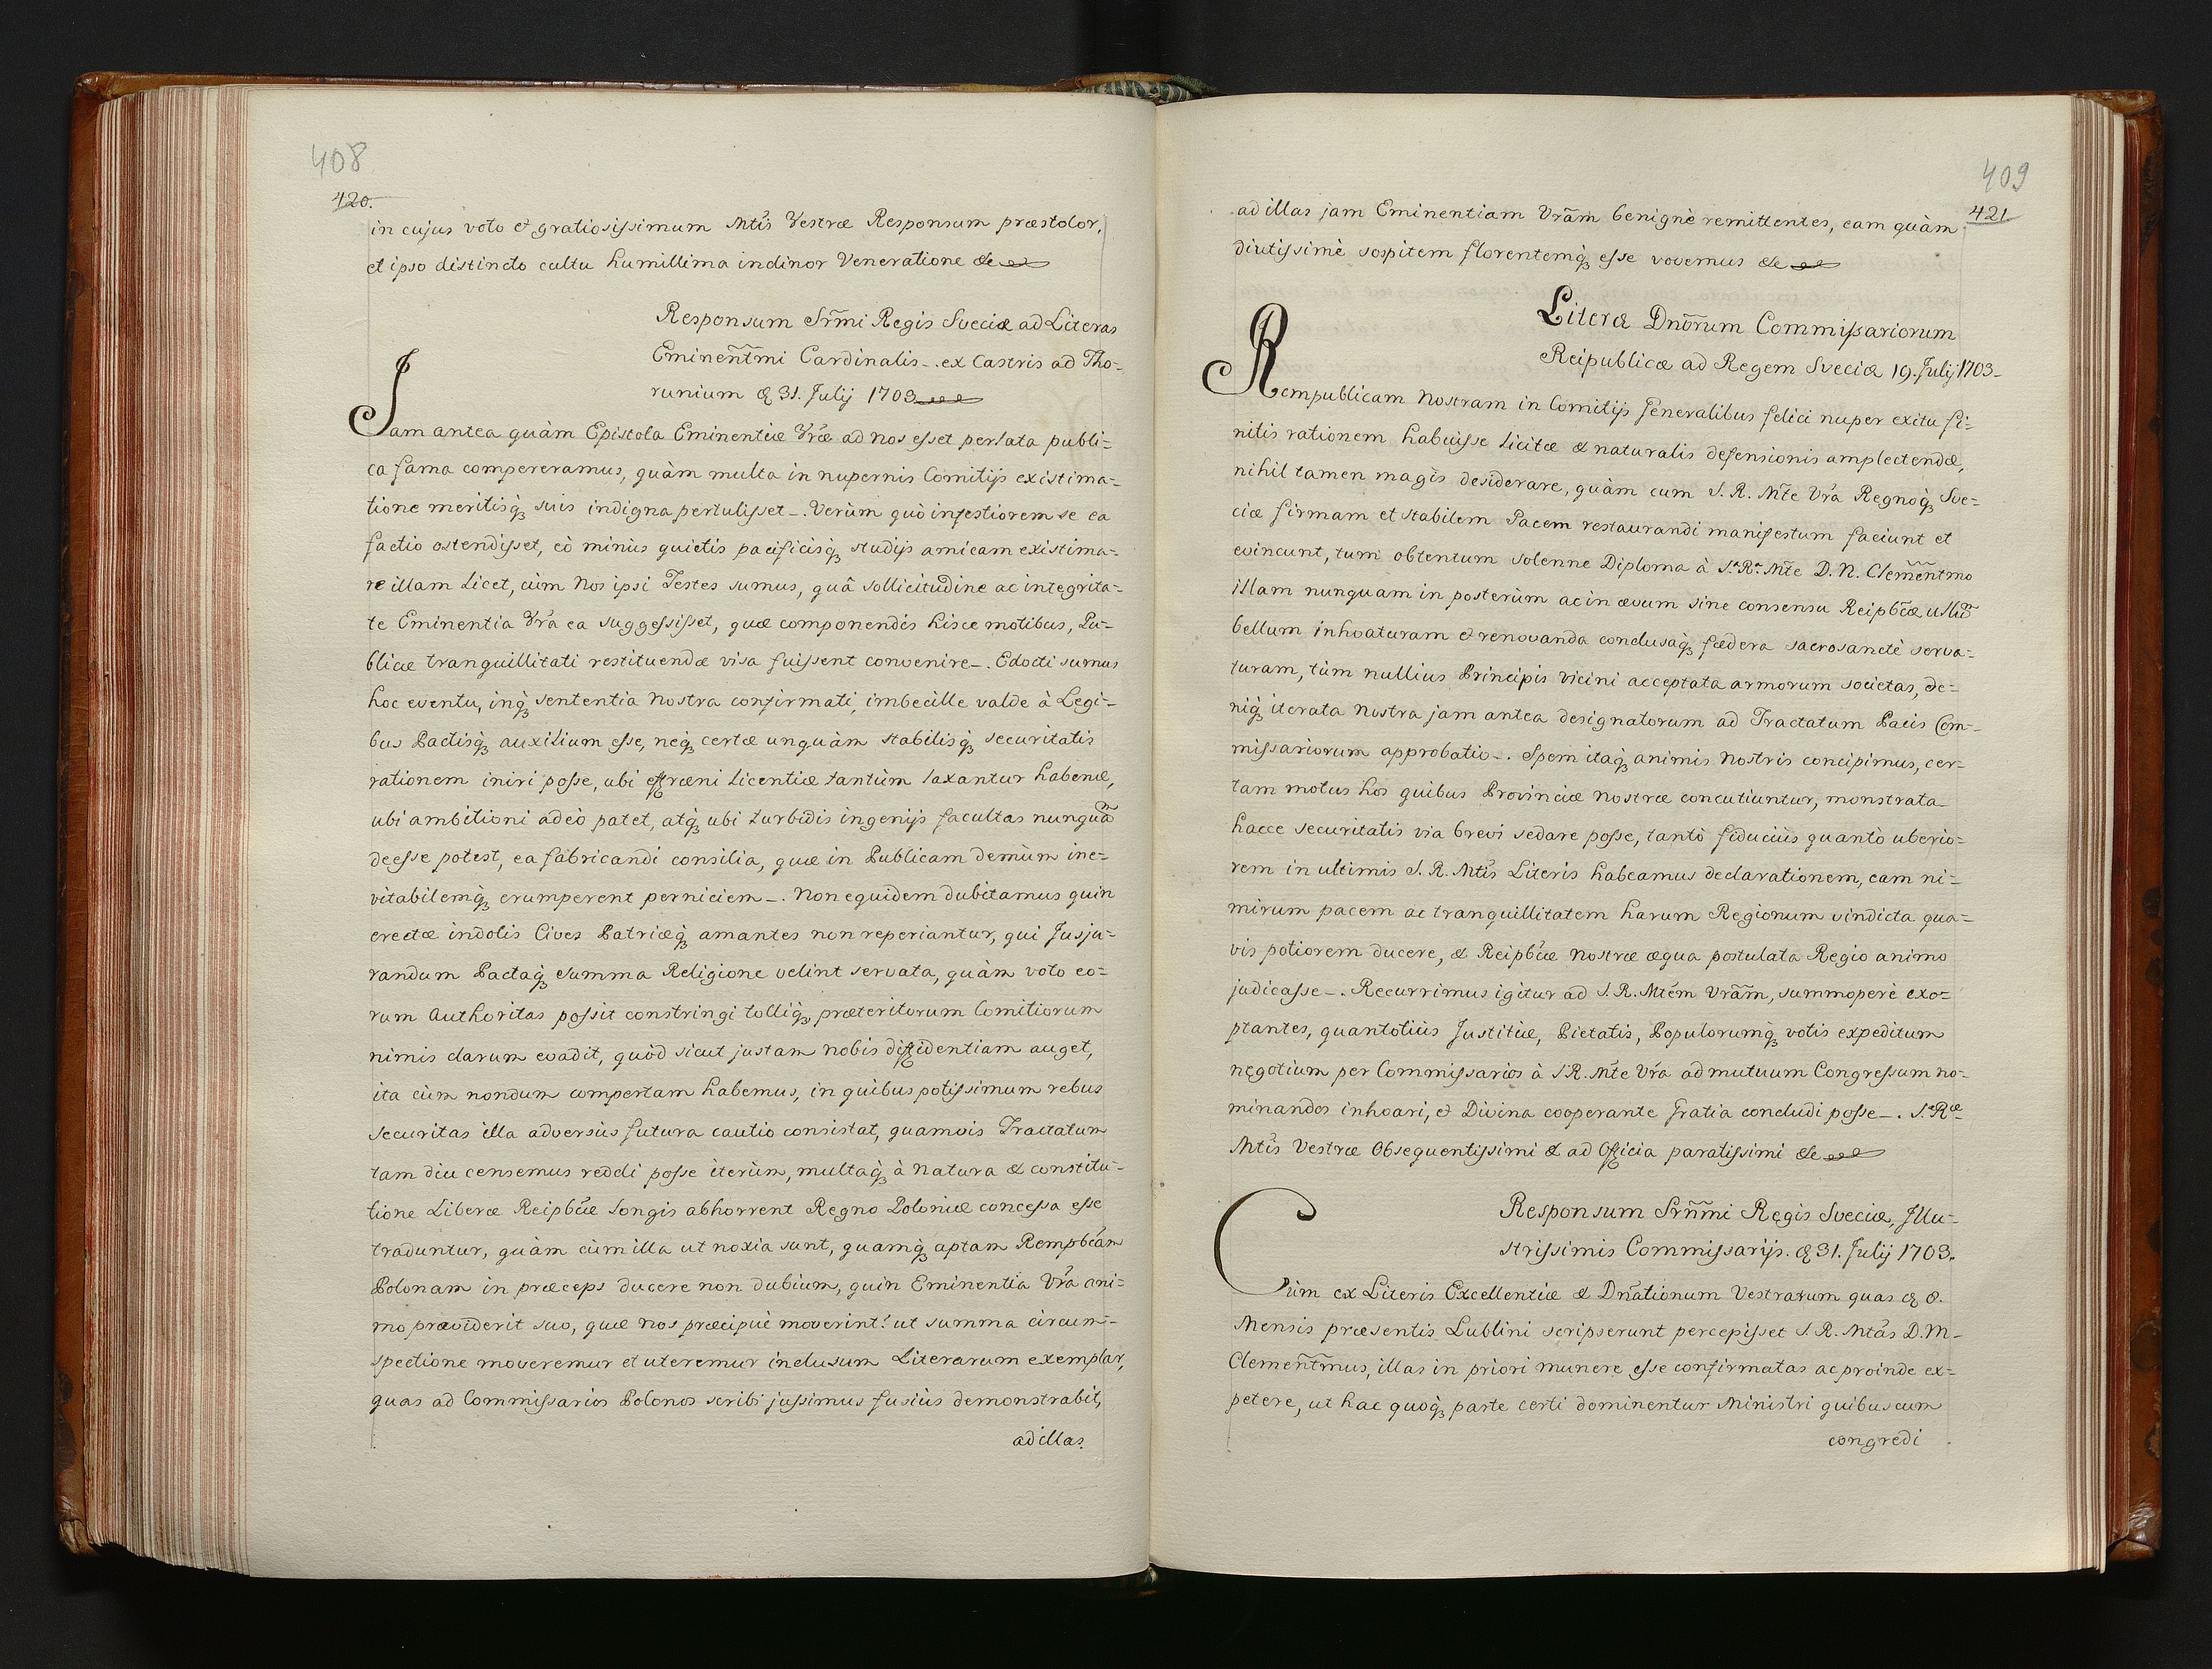 408
420.
in cujus voto et gratiosissimum Mtis Vestræ Responsum præstolor,
et ipso distincto cultu humillima inclinor Veneratione &c
Responsum Srm̃i Regis Sveciæ ad Literas
Eminent̃mi Cardinalis. ex Castris ad Tho-
runium d. 31. Julij 1703
Jam antea quàm Epistola Eminentiæ Vræ ad nos esset perlata publi-
ca fama compereramus, quàm multa in nupernis Comitijs existima-
tione meritisq́; suis indigna pertulisset. Verùm quò infestiorem se ea
factio ostendisset, eò minùs quietis pacificisq́; studijs amicam existima-
re illam licet, cùm Nos ipsi Testes sumus, quâ sollicitudine ac integrita-
te Eminentia Vrã ea suggessisset, quæ componendis hisce motibus, Pu-
blicæ tranquillitati restituendæ visa fuissent convenire. Edocti sumus
hoc eventu, inq́; sententia nostra confirmati, imbecille valde à Legi-
bus Pactisq́; auxilium esse, neq́; certæ unquàm stabilisq́; securitatis
rationem iniri posse, ubi effræni licentiæ tantùm laxantur habenæ,
ubi ambitioni adeò patet, atq́; ubi turbidis ingenijs facultas nunquã
deesse potest, ea fabricandi consilia, quæ in Publicam demùm ine-
vitabilemq́; erumperent perniciem. Non equidem dubitamus quin
erectæ indolis Cives Patriæq́; amantes non reperiantur, qui Jusju-
randum Pactaq́; summa Religione velint servata, quàm voto eo-
rum Authoritas possit constringi tolliq́; præteritorum Comitiorum
nimis clarum evadit, quòd sicut justam nobis diffidentiam auget,
ita cùm nondum compertam habemus, in quibus potissimum rebus
securitas illa adversùs futura cautio consistat, quamvis Tractatum
tam diu censemus reddi posse iterùm, multaq́; à natura & constitu-
tione Liberæ Reipbcæ longis abhorrent Regno Poloniæ concessa esse
traduntur, quàm cùm illa ut noxia sunt, quamq́; aptam Rempbcam
Polonam in præceps ducere non dubium, quin Eminentia Vrã ani-
mo præviderit suo, quæ nos præcipuè moverint: ut summa circum-
spectione moveremur et uteremur inclusum Literarum exemplar,
quas ad Commissarios Polonos scribi jussimus fusiùs demonstrabit,
ad illas
409
421
ad illas jam Eminentiam Vrãm benignè remittentes, eam quàm
diutissimè sospitem florentemq́; esse vovemus &c
Literæ Dnõrum Commissariorum
Reipublicæ ad Regem Sveciæ 19. Julij 1703
Rempublicam Nostram in Comitijs Generalibus felici nuper exitu fi-
nitis rationem habuisse licitæ & naturalis defensionis amplectendæ,
nihil tamen magis desiderare, quàm cum S. R. Mte Vrã Regnoq́; Sve-
ciæ firmam et stabilem Pacem restaurandi manifestum faciunt et
evincunt, tum obtentum solenne Diploma à S.a R.a Mte D. N. Clement̃mo
illam nunquam in posterùm ac in ævum sine consensu Reipbcæ ullũ
bellum inhoaturam et renovanda conclusaq́; fœdera sacrosanctè serva-
turam, tùm nullius Principis vicini acceptata armorum societas, de-
niq́; iterata nostra jam antea designatorum ad Tractatum Pacis Com-
missariorum approbatio. Spem itaq́; animis nostris concipimus, cer-
tam motus hos quibus Provinciæ nostræ concutiuntur, monstrata
hacce securitatis via brevi sedare posse, tantò fiduciùs quantò uberio-
rem in ultimis S. R. Mtis Literis habeamus declarationem, eam ni-
mirum pacem ac tranquillitatem harum Regionum vindicta qua-
vis potiorem ducere, & Reipbcæ nostræ æqua postulata Regio animo
judicasse. Recurrimus igitur ad S. R. Mtem Vrãm, summoperè exo-
ptantes, quantotiùs Justitiæ, Pietatis, Populorumq́; votis expeditum
negotium per Commissarios à S R. Mte Vrã ad mutuum Congressum no-
minandos inhoari, et Divina cooperante Gratia concludi posse. S.æ R.æ
Mtis Vestræ Obsequentissimi & ad Officia paratissimi &c
Responsum Srñmi Regis Sveciæ, Illu-
strissimis Commissarijs. d. 31. Julij 1703.
Cùm ex Literis Excellentiæ & Dnãtionum Vestrarum quas d. 8.
Mensis præsentis Lublini scripserunt percepisset S. R. Mtas D. M
Clement̃mus, illas in priori munere esse confirmatas ac proinde ex-
petere, ut hac quoq́; parte certi dominentur Ministri quibuscum
congredi